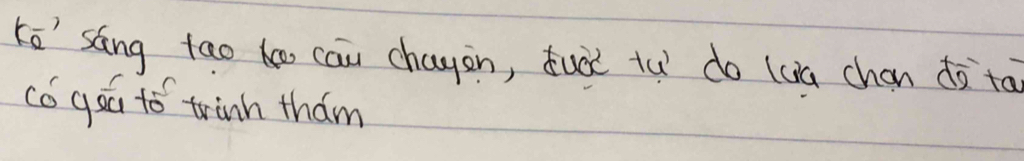 kể sáng tạo câu chuyện, được tự do lựa chọn đề tài
có yếu tố trinh thám